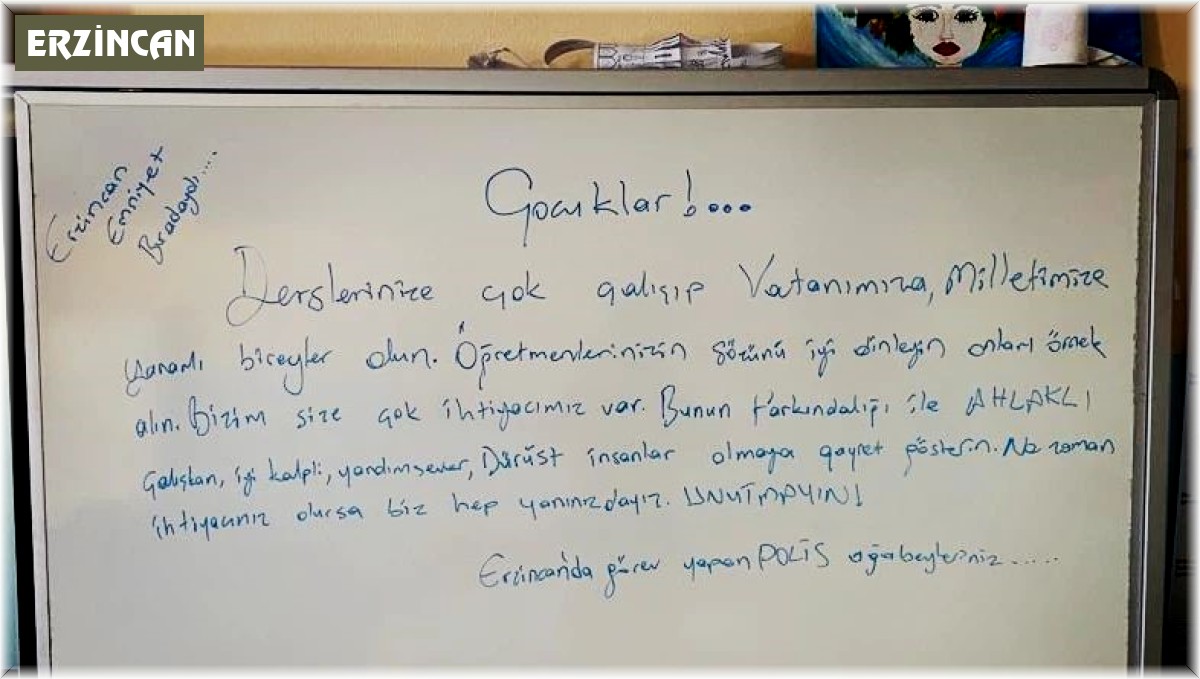 ERZİNCAN
Erzincan
Emniyet
Buradaydı.....
Çocuklar!...
Derslerinize çok çalışıp Vatanımıza, Milletimize
yararlı bireyler olun. Öğretmenlerinizin sözünü iyi dinleyin onları örnek
alın. Bizim size çok ihtiyacımız var. Bunun farkındalığı ile AHLAKLI
Çalışkan, iyi kalpli, yardımsever, Dürüst insanlar olmaya gayret gösterin. Ne zaman
ihtiyacınız olursa biz hep yanınızdayız. UNUTMAYIN!
Erzincan'da görev yapan POLİS ağabeyleriniz.....